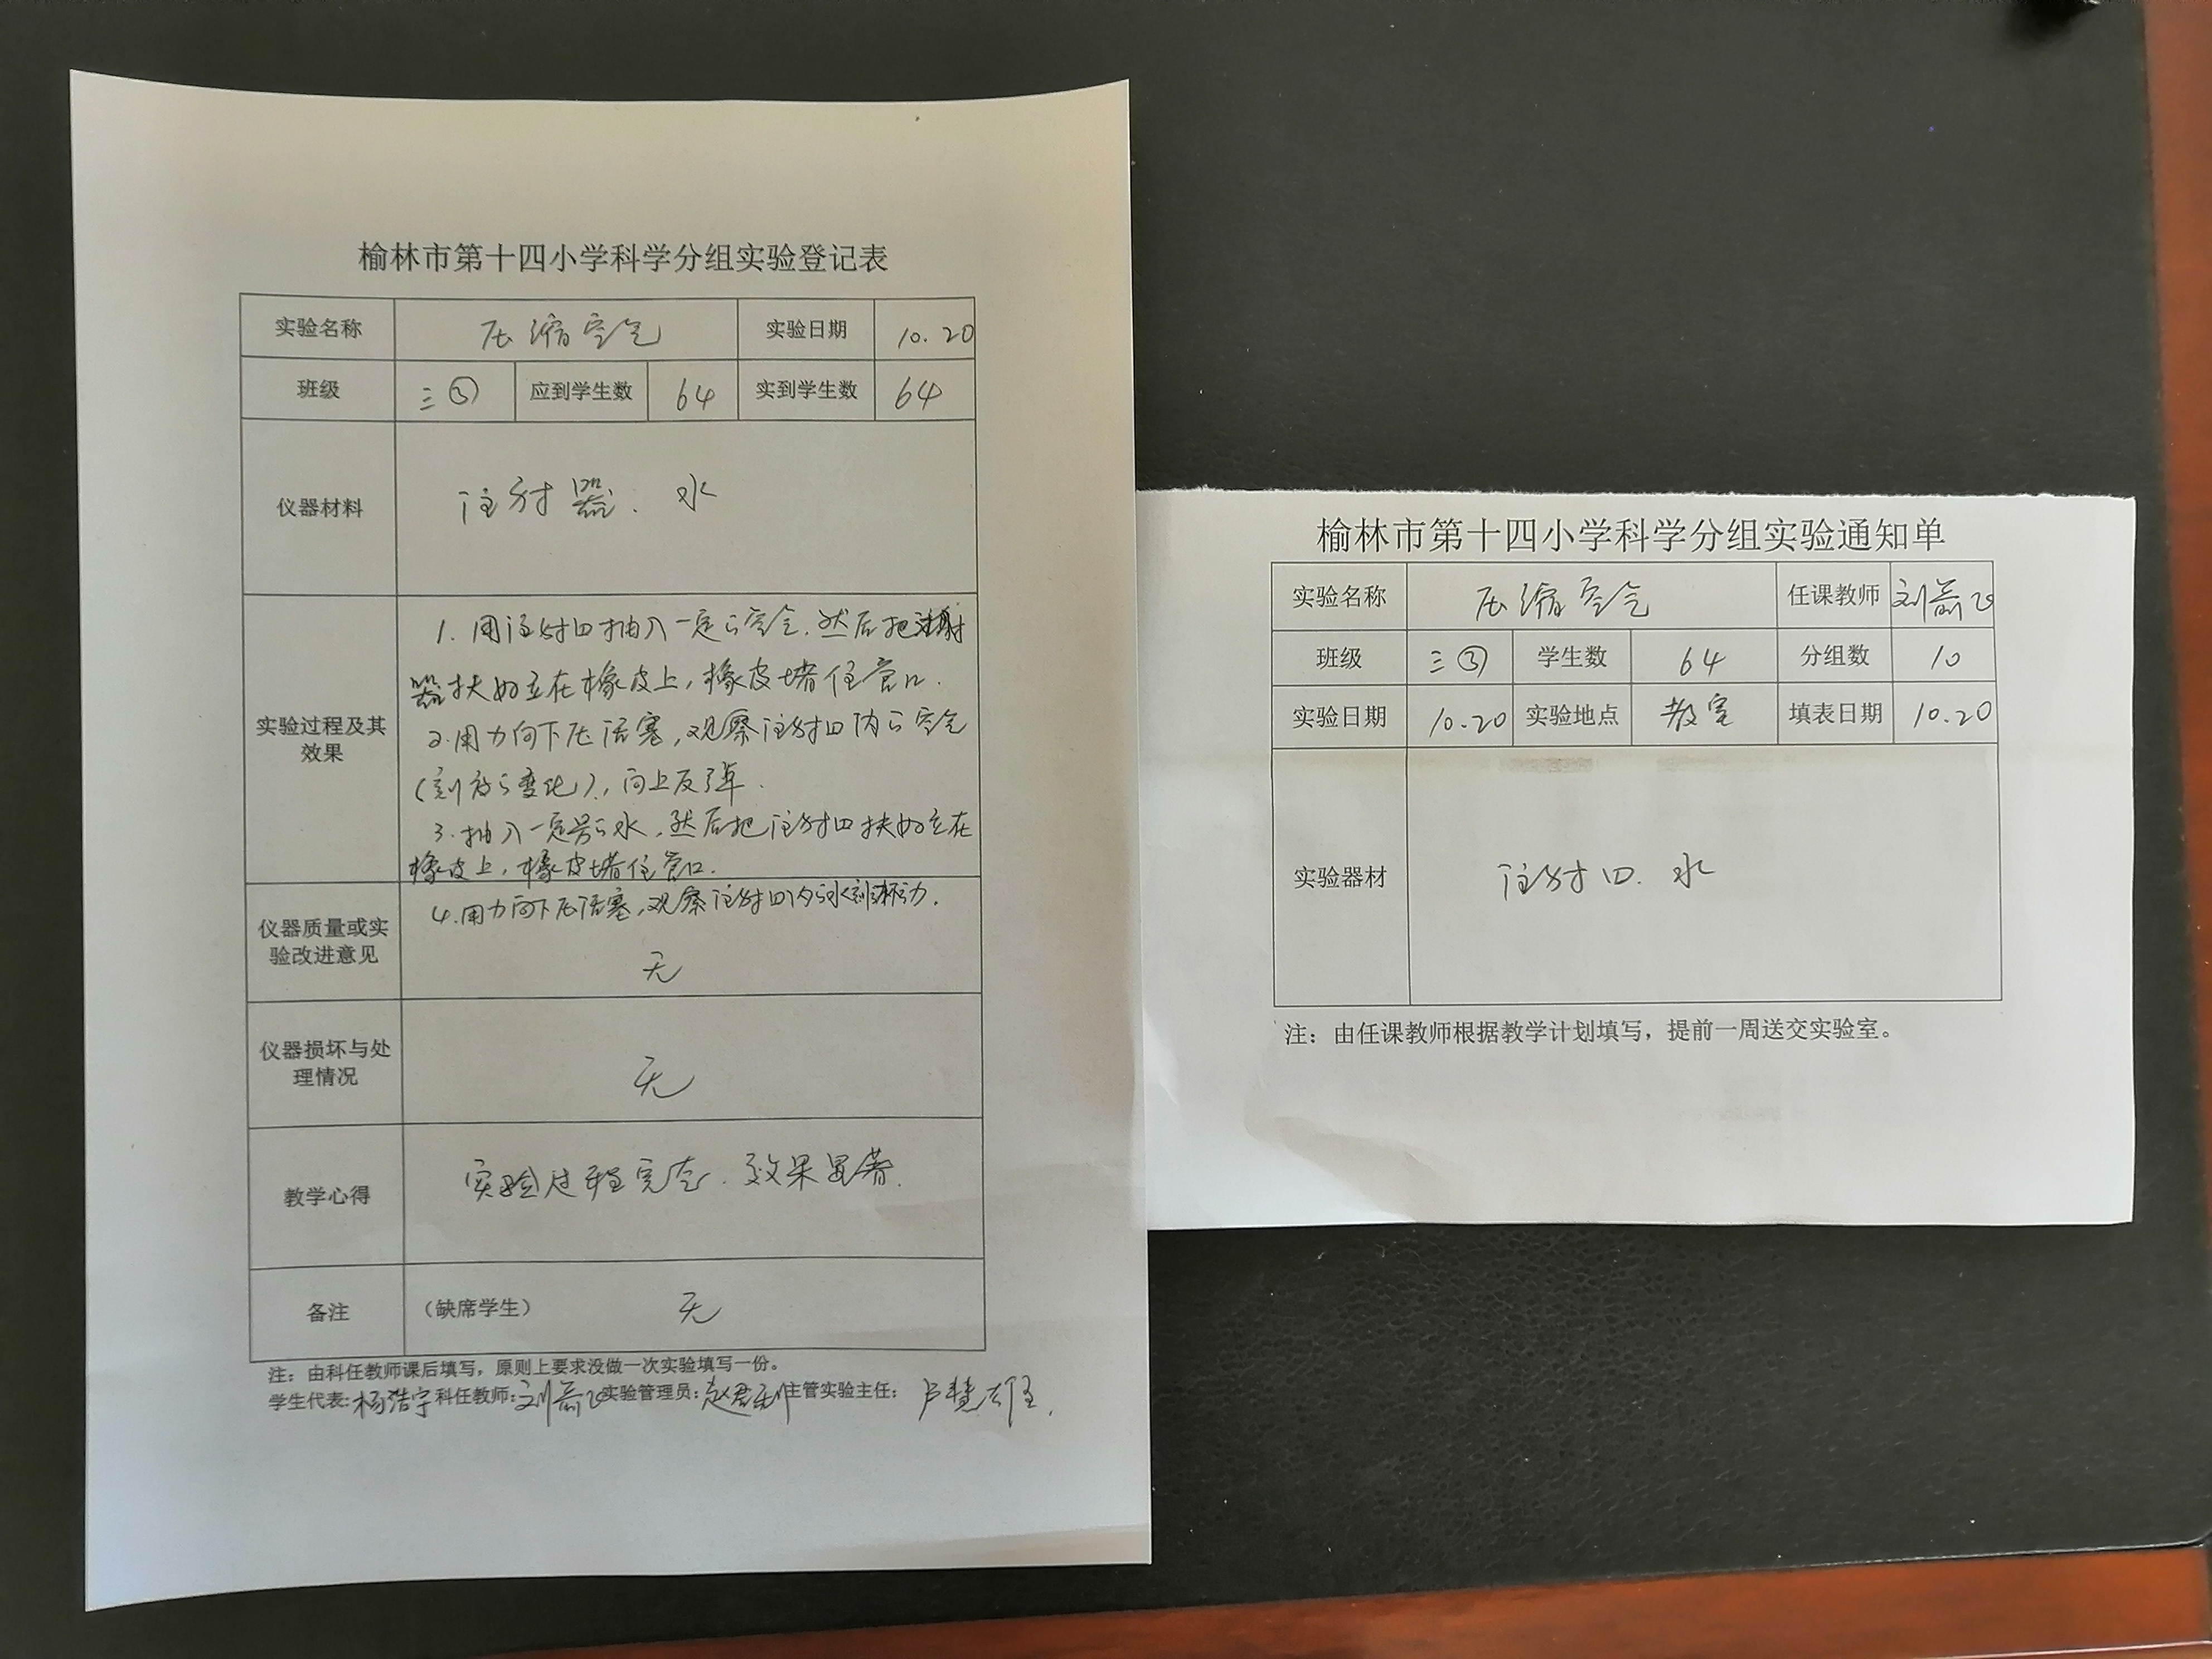 榆林市第十四小学科学分组实验登记表
实验名称 压缩空气 实验日期 10.20
班级 三③ 应到学生数 64 实到学生数 64
仪器材料 注射器. 水
实验过程及其
效果
1. 用注射口抽入一定的空气. 然后把注射
器扶好立在橡皮上, 橡皮堵住管口.
2. 用力向下压活塞, 观察注射口内的空气
(刻度的变化), 向上反弹.
3. 抽入一定量的水, 然后把注射口扶好立在
橡皮上, 橡皮堵住管口.
4. 用力向下压活塞, 观察注射口内的水
仪器质量或实
验改进意见
无
仪器损坏与处
理情况
无
教学心得 实验过程完
效果显著.
备注 (缺席学生) 无
注：由科任教师课后填写，原则上要求没做一次实验填写一份。
学生代表: 杨浩宇 科任教师: 刘 实验管理员: 赵 主管实验主任: 卢慧雄
榆林市第十四小学科学分组实验通知单
实验名称 压缩空气 任课教师 刘
班级 三③ 学生数 64 分组数 10
实验日期 10.20 实验地点 教室 填表日期 10.20
实验器材 注射口. 水
注：由任课教师根据教学计划填写，提前一周送交实验室。